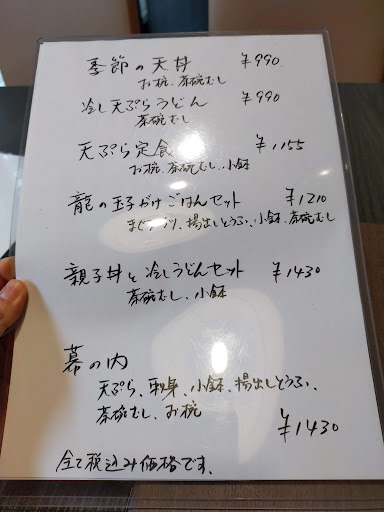 季節の天丼 ¥990
お椀、茶碗むし
冷し天ぷらうどん ¥990
茶碗むし
天ぷら定食 ¥1155
お椀、茶碗むし、小鉢
龍の玉子がけごはんセット ¥1210
まぐろブツ、揚出しとうふ、小鉢、茶碗むし
親子丼と冷しうどんセット ¥1430
茶碗むし、小鉢
幕の内
天ぷら、刺身、小鉢、揚出しとうふ、
茶碗むし、お椀
¥1430
全て税込み価格です。